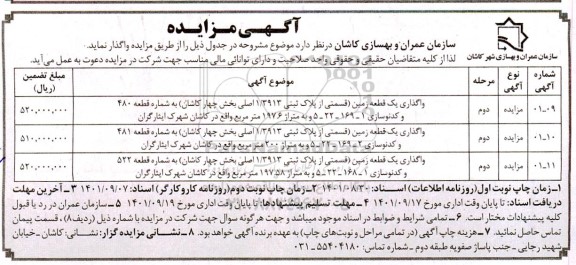 آگهی مزایده
سازمان عمران و بهسازی شهر کاشان
سازمان عمران و بهسازی کاشان درنظر دارد موضوع مشروحه در جدول ذیل را از طریق مزایده واگذار نماید.
لذا از کلیه متقاضیان حقیقی و حقوقی واجد صلاحیت و دارای توانائی مالی مناسب جهت شرکت در مزایده دعوت به عمل می‌آید.
شماره آگهی نوع آگهی مرحله موضوع آگهی مبلغ تضمین (ریال)
۰۱-۰۹ مزایده دوم واگذاری یک قطعه زمین (قسمتی از پلاک ثبتی ۱/۳۹۱۳ اصلی بخش چهار کاشان) به شماره قطعه ۴۸۰ ۵۲۰,۰۰۰,۰۰۰
و کدنوسازی ۱-۱۶۹-۲۲-۵ و به متراژ ۱۹۷.۶ متر مربع واقع در کاشان شهرک ایثارگران
۰۱-۱۰ مزایده دوم واگذاری یک قطعه زمین (قسمتی از پلاک ثبتی ۱/۳۹۱۳ اصلی بخش چهار کاشان) به شماره قطعه ۴۸۱ ۵۱۰,۰۰۰,۰۰۰
و کدنوسازی ۲-۱۶۹-۲۲-۵ و به متراژ ۲۰۰ متر مربع واقع در کاشان شهرک ایثارگران
۰۱-۱۱ مزایده دوم واگذاری یک قطعه زمین (قسمتی از پلاک ثبتی ۱/۳۹۱۳ اصلی بخش چهار کاشان) به شماره قطعه ۵۲۲ ۵۲۰,۰۰۰,۰۰۰
و کدنوسازی ۱-۱۶۸-۲۲-۵ و به متراژ ۱۹۷.۵۸ متر مربع واقع در کاشان شهرک ایثارگران
۱ـ زمان چاپ نوبت اول (روزنامه اطلاعات) اسناد: ۱۴۰۱/۰۸/۳۰ ۲ـ زمان چاپ نوبت دوم (روزنامه کاروکارگر) اسناد: ۱۴۰۱/۰۹/۰۷ ۳ـ آخرین مهلت
دریافت اسناد: تا پایان وقت اداری مورخ ۱۴۰۱/۰۹/۱۷ ۴ـ مهلت تسلیم پیشنهادها: تا پایان وقت اداری مورخ ۱۴۰۱/۰۹/۱۹ ۵ـ سازمان عمران در رد یا قبول
کلیه پیشنهادات مختار است. ۶ـ تمامی شرایط و ضوابط در اسناد موجود میباشد و جهت هرگونه سوال جهت شرکت در مزایده با شماره ذیل (ردیف۸)، قسمت پیمان
تماس حاصل نمائید. ۷ـ هزینه چاپ آگهی (در تمامی مراحل و نوبت‌های چاپ) به عهده برنده آگهی خواهد بود. ۸ـ نشانی مزایده گزار: نشانی: کاشان- خیابان
شهید رجایی- جنب پاساژ صفویه طبقه دوم- شماره تماس: ۵۵۴۰۴۱۸۰-۰۳۱